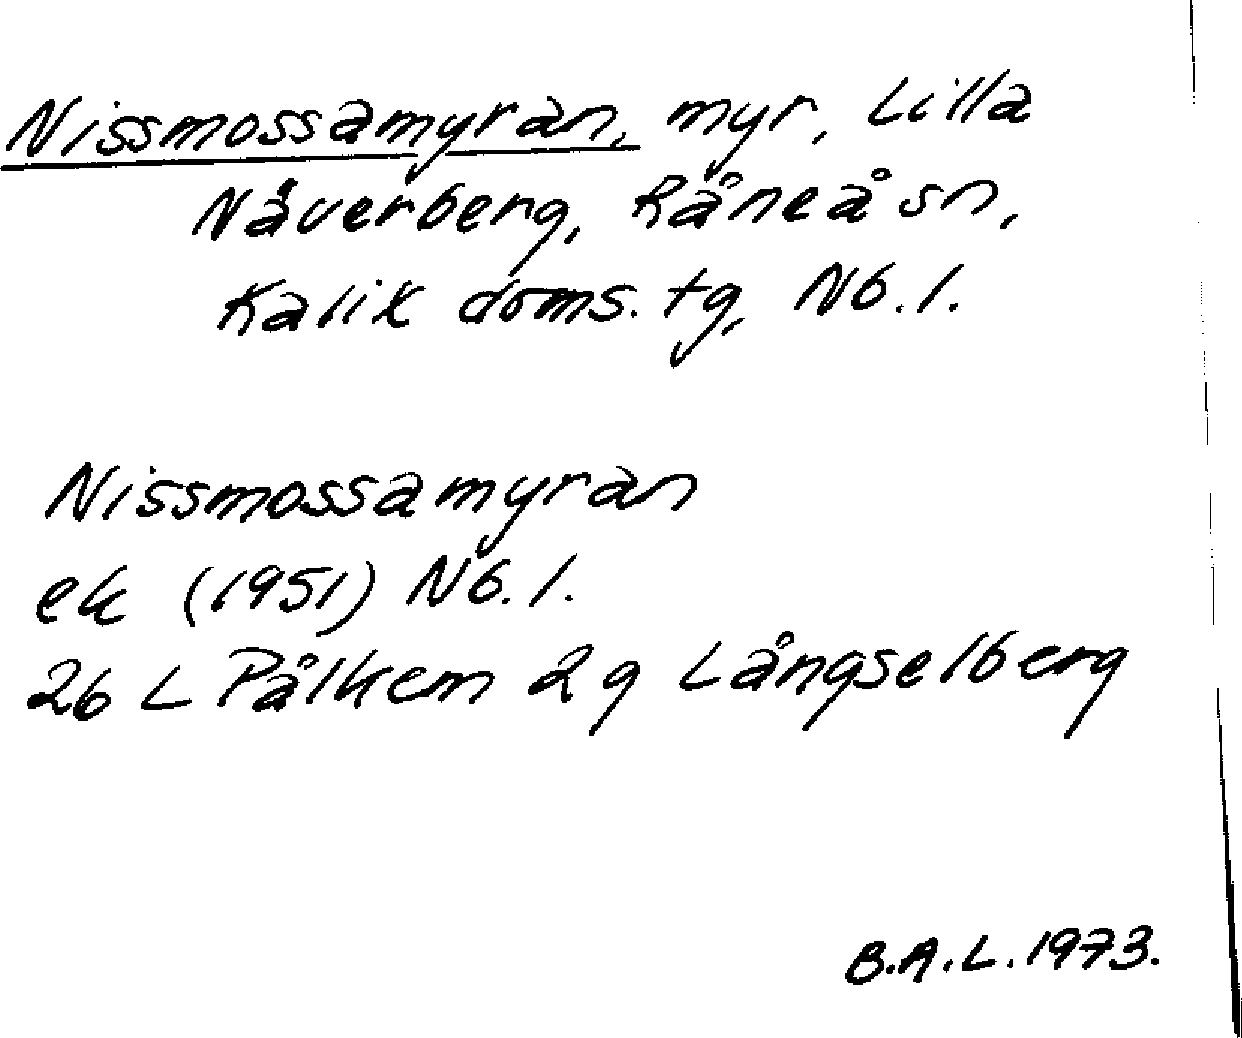 Nissmossamyran, myr, Lilla
Näverberg, Råneå sn,
Kalix doms. tg, Nb. l.
Nissmossamyran
ek (1951) Nb. l.
26 L Pålkem 2g Långselberg
B.A.L. 1973.